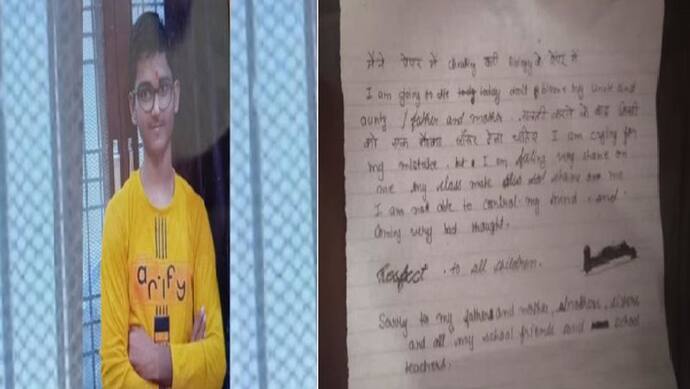 arify
मैंने पेपर में cheating की Biology के पेपर में
I am going to die today don't blame my uncle and
aunty / father and mother. गलती करने के बाद किसी
को एक मौका जरूर देना चाहिए I am crying for
my mistake. but I am feeling very shame on
me my class mate also did shame on me
I am not able to control my mind. and
Coming very bad thought.
Respect. to all children.
Sorry to my father and mother, brothers, sisters
and all my school friends and school
teachers.